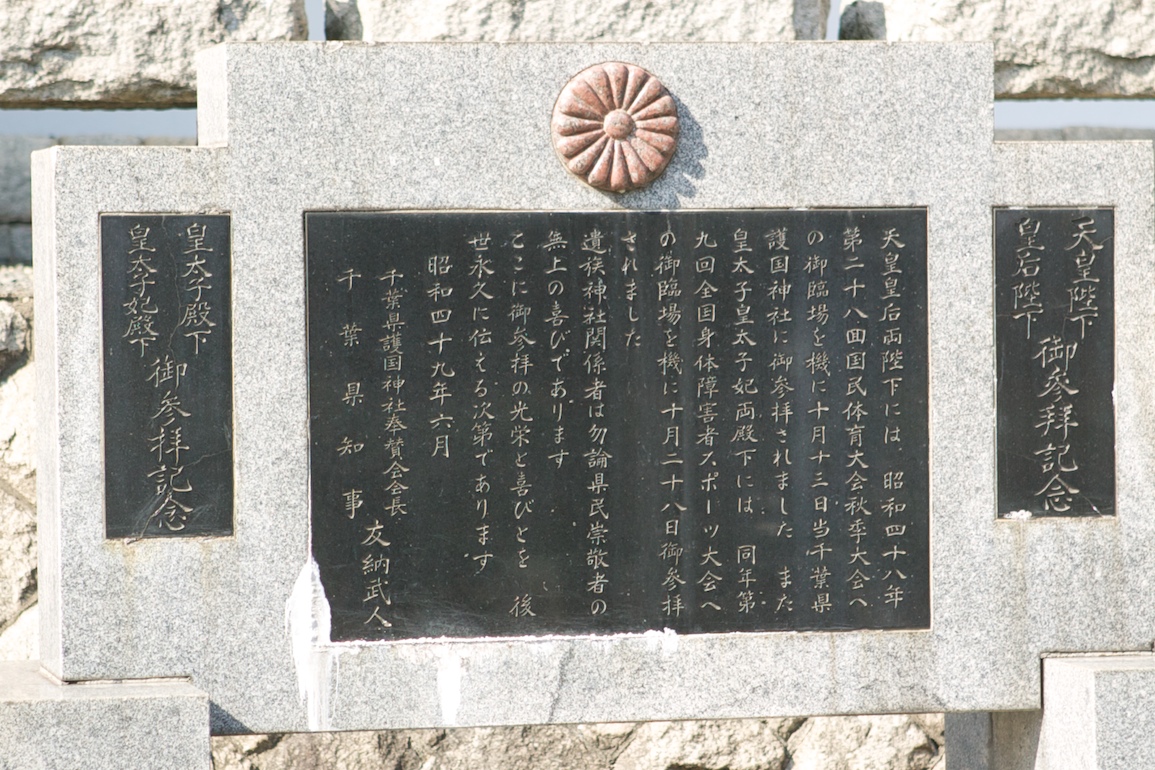 天皇陛下
皇后陛下
御参拝記念
天皇皇后両陛下には 昭和四十八年
第二十八回国民体育大会秋季大会へ
の御臨場を機に十月十三日当千葉県
護国神社に御参拝されました また
皇太子皇太子妃両殿下には 同年第
九回全国身体障害者スポーツ大会へ
の御臨場を機に十月二十八日御参拝
されました
遺族神社関係者は勿論県民崇敬者の
無上の喜びであります
ここに御参拝の光栄と喜びとを 後
世永久に伝える次第であります
昭和四十九年六月
千葉県護国神社奉賛会会長
千葉県知事 友納武人
皇太子殿下
皇太子妃殿下
御参拝記念